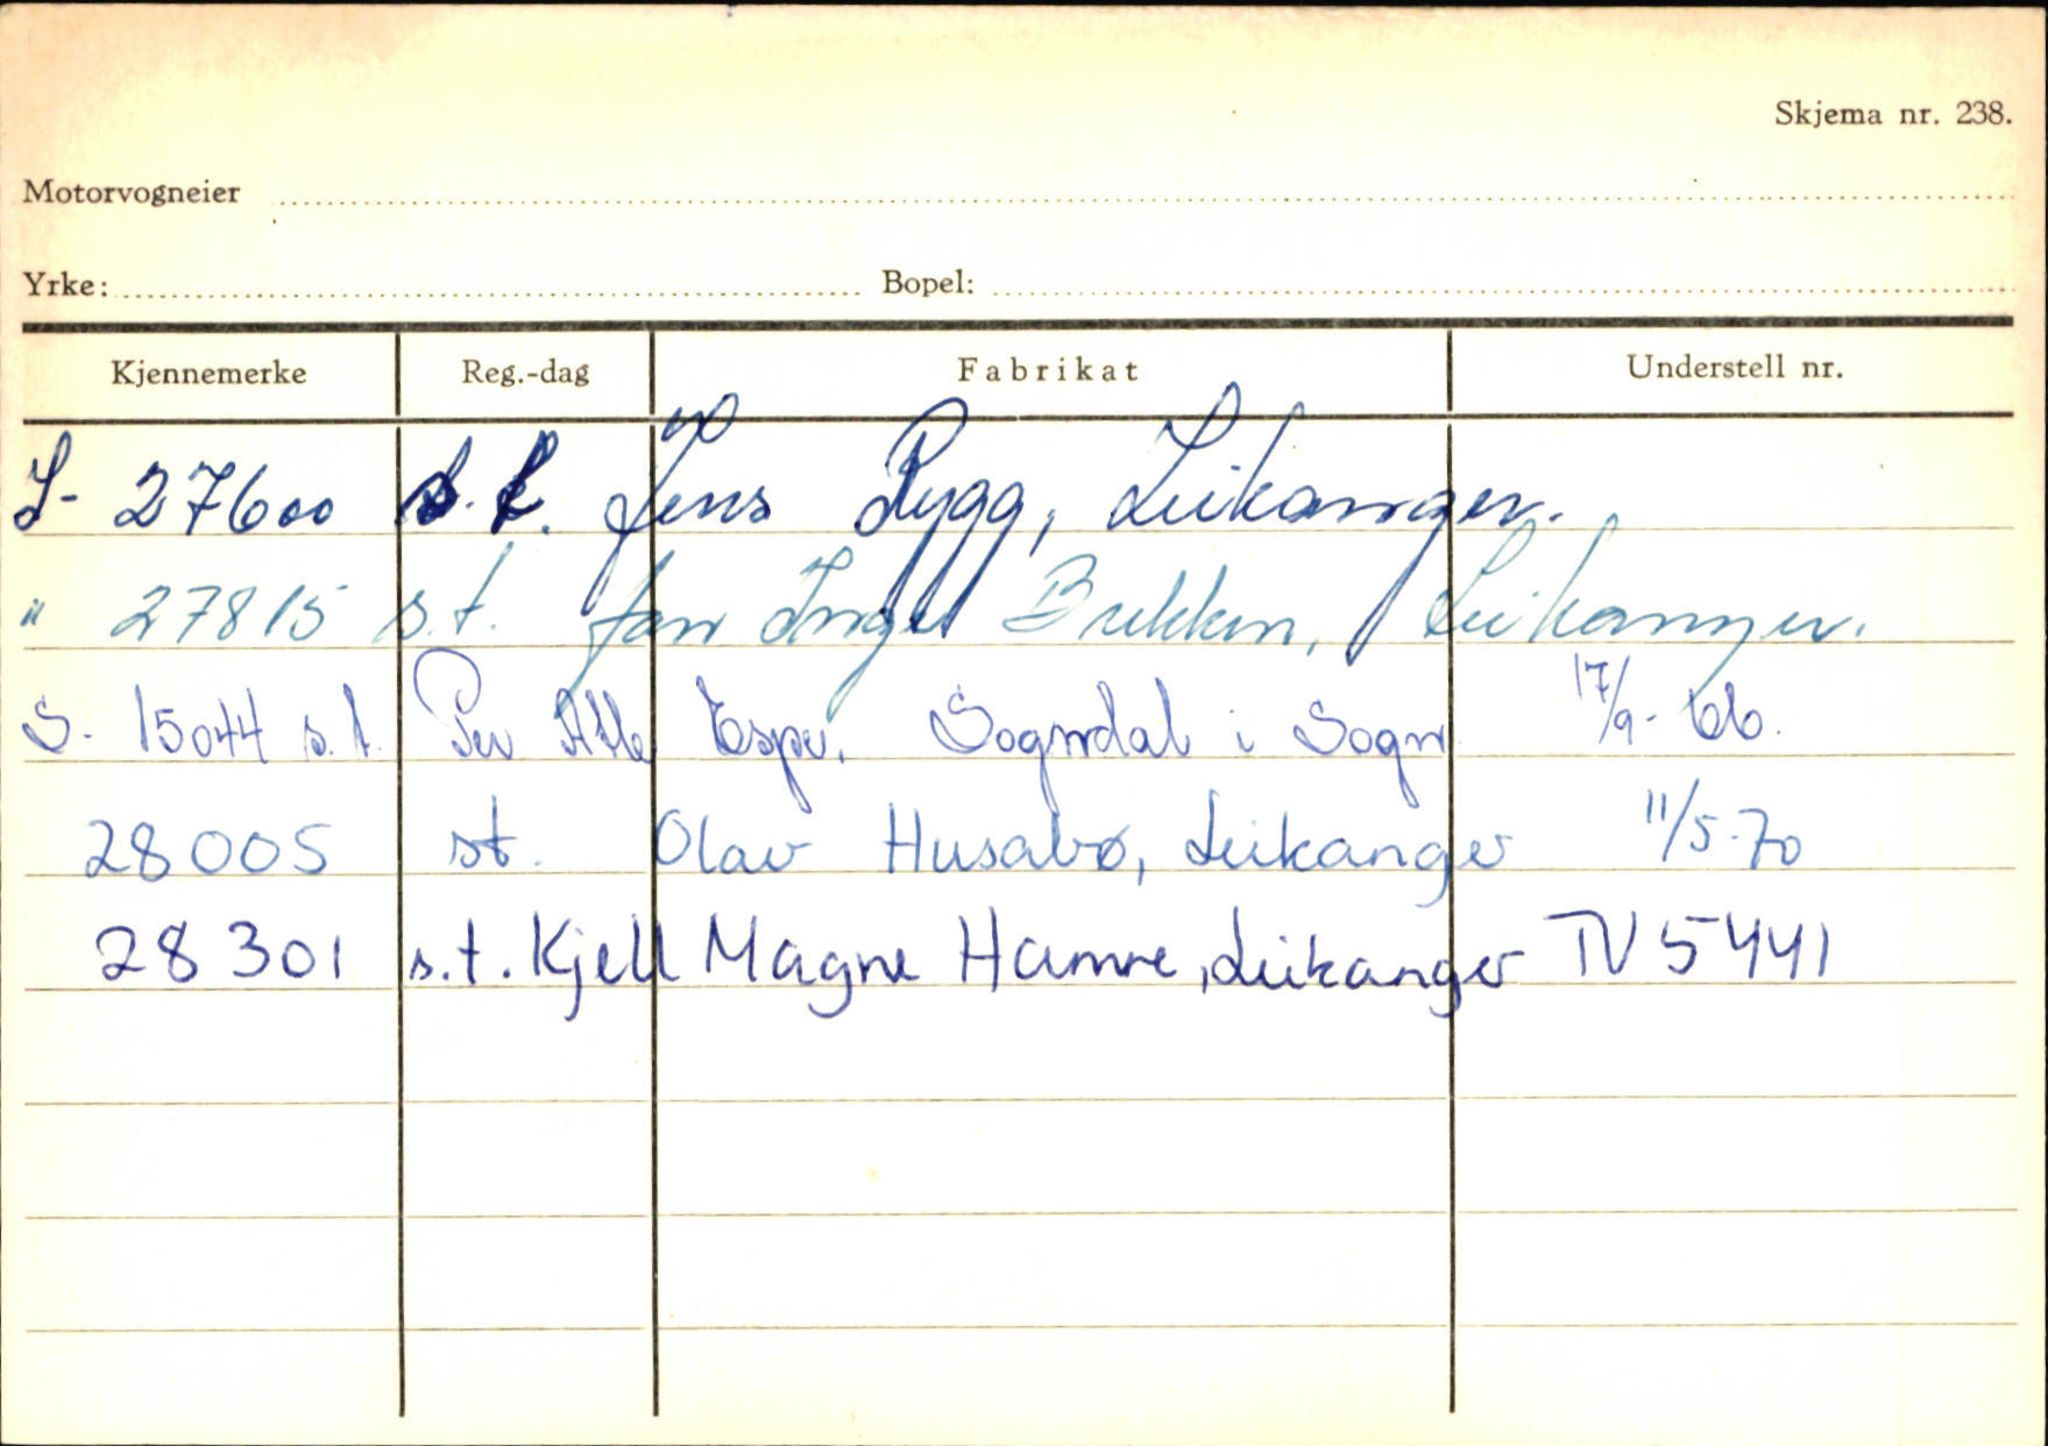 Skjema nr. 238.
Motorvogneier
Yrke: Bopel:
Kjennemerke Reg.-dag Fabrikat Understell nr.
S- 27600 s.t. Jens Rygg, Leikanger.
" 27815 s.t. Jan Inge Brekken, Leikanger.
S. 15044 s.t. Per Atle Espe. Sogndal i Sogn 17/9-66.
28005 st. Olav Husabø, Leikanger 11/5-70
28301 s.t. Kjell Magne Hamre, Leikanger TV 5441